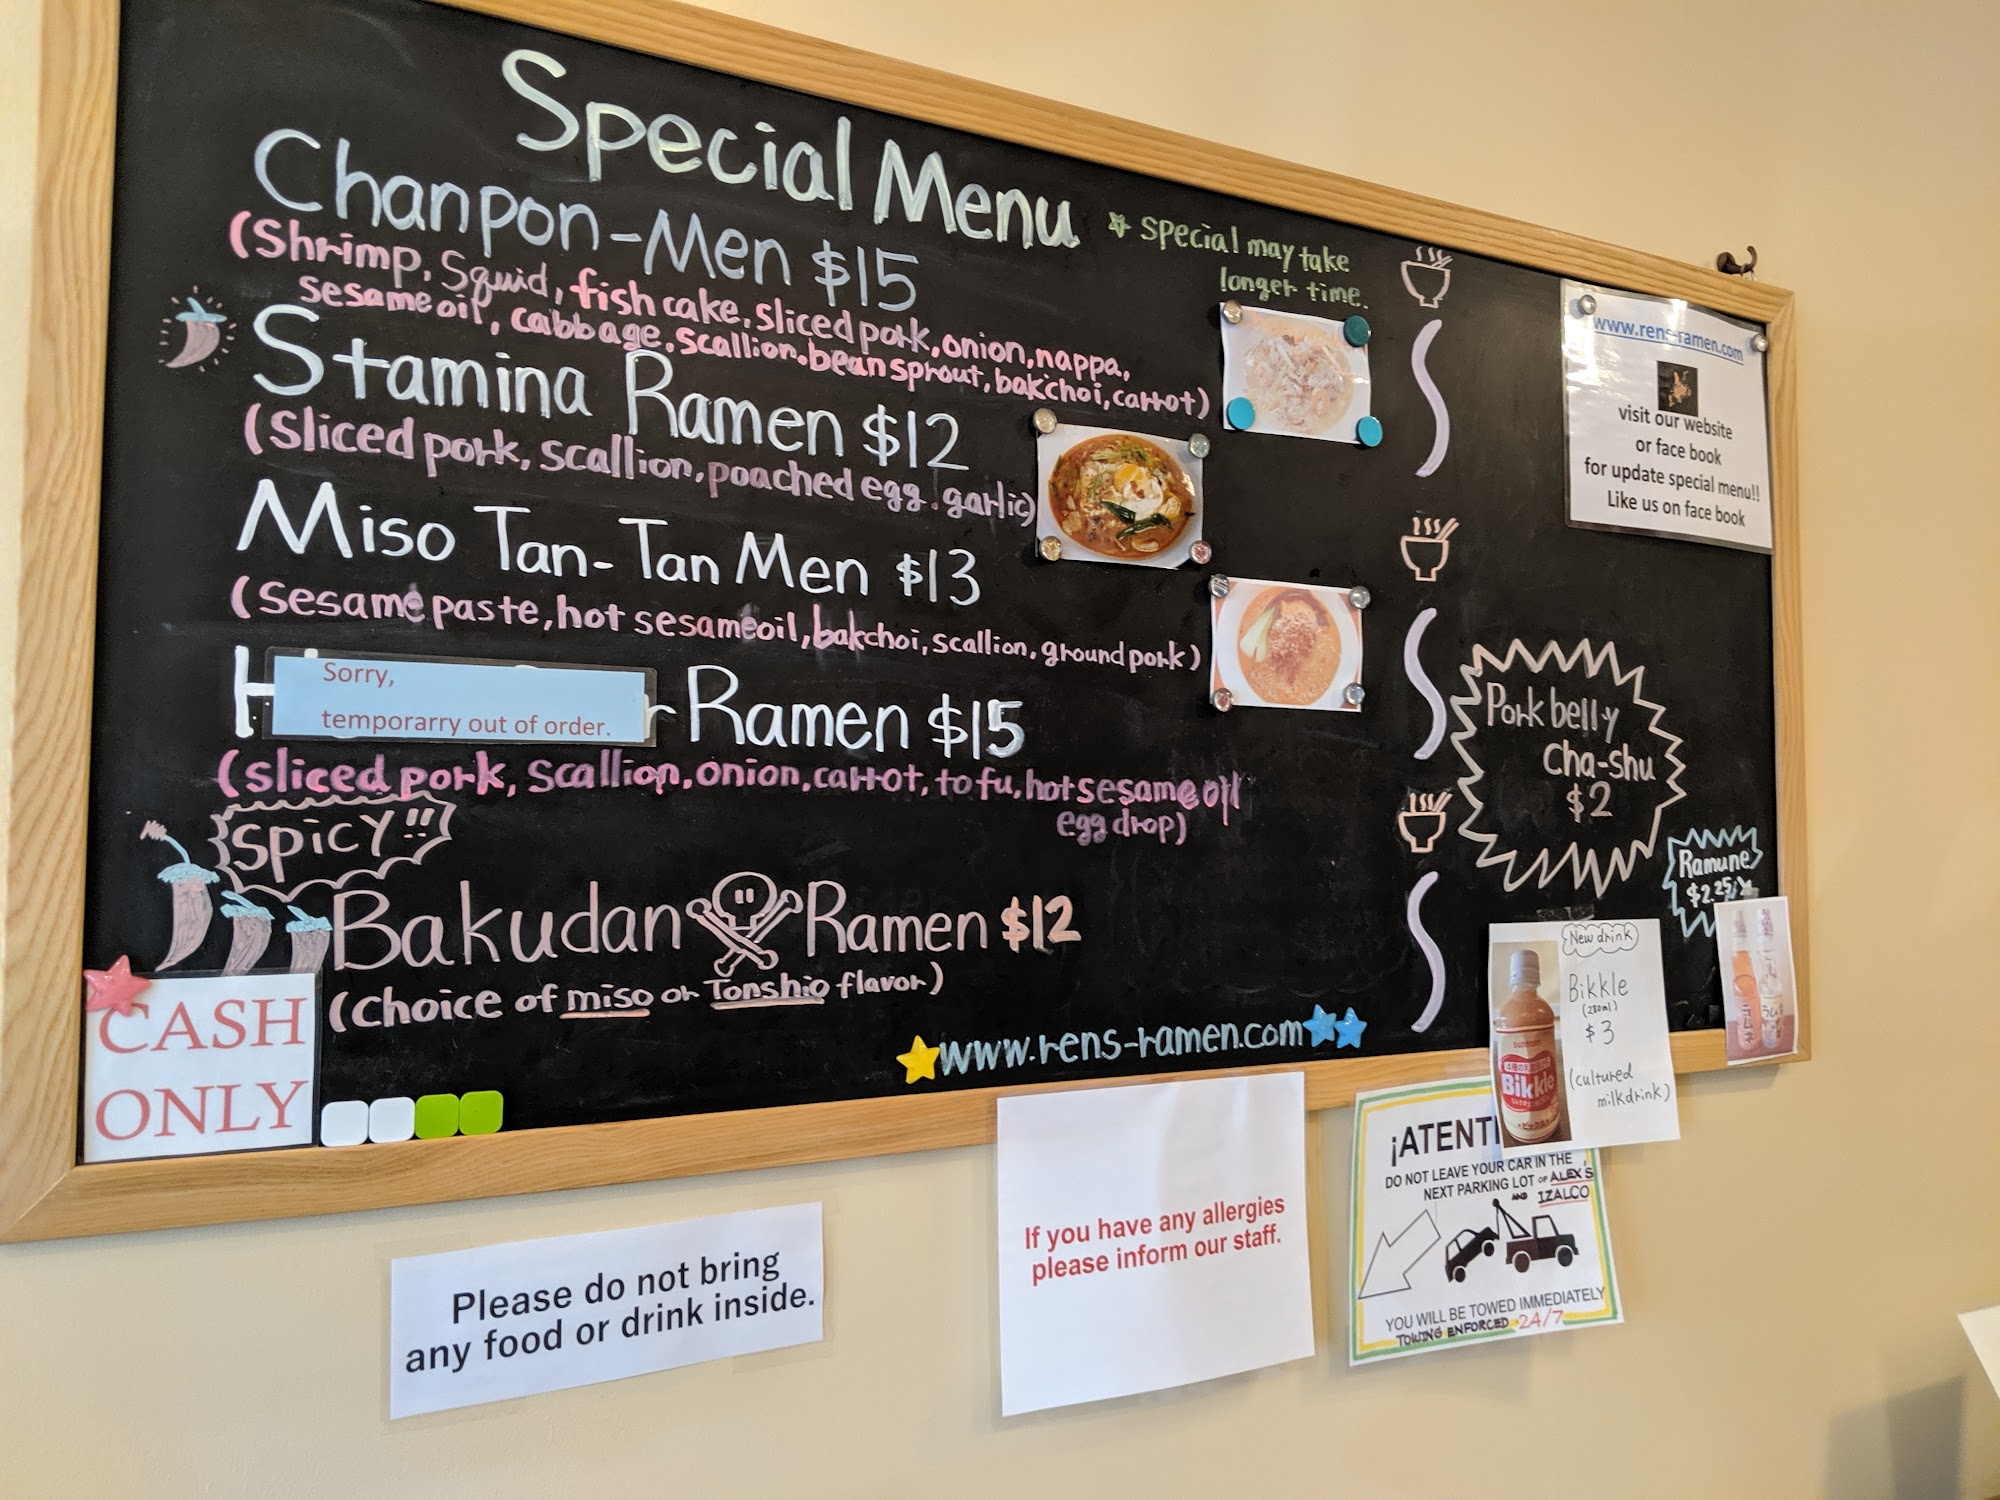 Special Menu
Special may take
longer time.
Chanpon-Men $15
(Shrimp, Squid, fish cake, sliced pork, onion, nappa,
sesame oil, cabbage, scallion, bean sprout, bakchoi, carrot)
Stamina Ramen $12
(Sliced pork, scallion, poached egg, garlic)
Miso Tan-Tan Men $13
(Sesame paste, hot sesame oil, bakchoi, scallion, ground pork)
Sorry,
temporarry out of order.
Ramen $15
(sliced pork, scallion, onion, carrot, tofu, hot sesame oil
egg drop)
SPICY!!
Bakudan Ramen $12
(choice of miso or Tonshio flavor)
www.rens-ramen.com
CASH
ONLY
www.rens-ramen.com
visit our website
or face book
for update special menu!!
Like us on face book
Pork belly
Cha-shu
$2
Ramune
$2.25
New drink
Bikkle
(280ml)
$3
(cultured
milk drink)
SUNTORY
Bikkle
¡ATENTI
DO NOT LEAVE YOUR CAR IN THE
NEXT PARKING LOT OF ALEX'S
AND IZALCO
YOU WILL BE TOWED IMMEDIATELY
TOWING ENFORCED 24/7
If you have any allergies
please inform our staff.
Please do not bring
any food or drink inside.